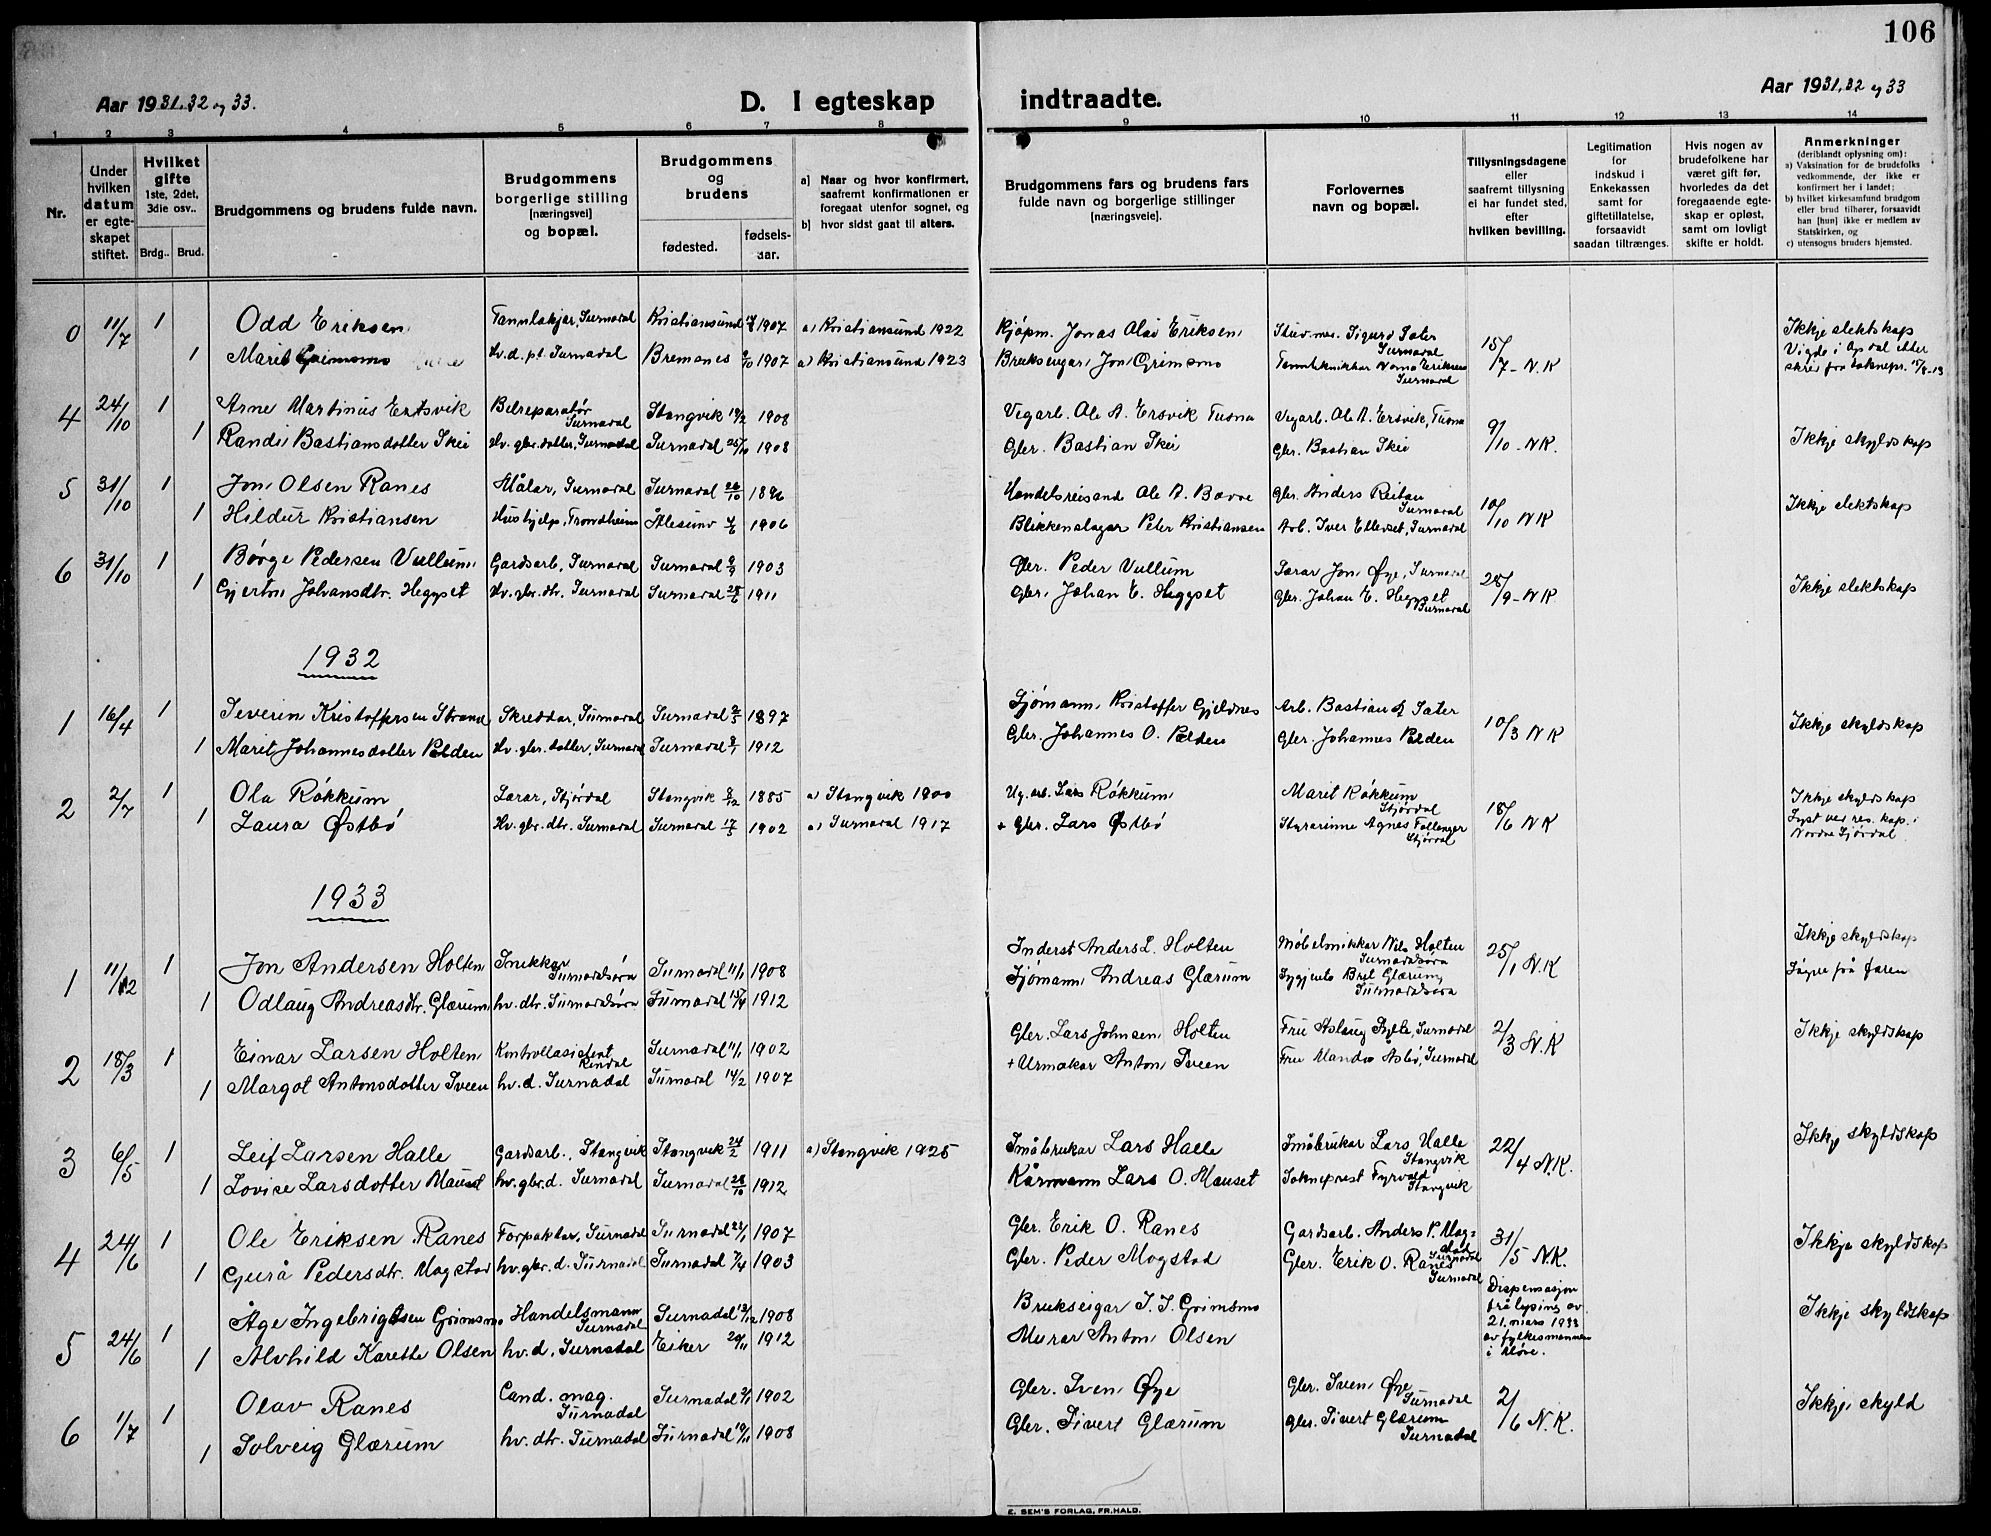 106
Aar 1931, 32 og 33.
D. I egteskap indtraadte.
Aar 1931, 32 og 33
1 2 3 4 5 6 7 8 9 10 11 12 13 14
Nr.
Under hvilken datum er egteskapet stiftet.
Hvilket gifte 1ste, 2det, 3die osv..
Brdg.. Brud.
Brudgommens og brudens fulde navn.
Brudgommens borgerlige stilling [næringsvei] og bopæl.
Brudgommens og brudens
fødested. fødsels-aar.
a] Naar og hvor konfirmert, saafremt konfirmationen er foregaat utenfor sognet, og
b] hvor sidst gaat til alters.
Brudgommens fars og brudens fars fulde navn og borgerlige stillinger [næringsveie].
Forlovernes navn og bopæl.
Tillysningsdagene eller saafremt tillysning ei har fundet sted, efter hvilken bevilling.
Legitimation for indskud i Enkekassen samt for giftetillatelse, forsaavidt saadan tiltrænges.
Hvis nogen av brudefolkene har været gift før, hvorledes da det foregaaende egteskap er opløst, samt om lovligt skifte er holdt.
Anmerkninger (deriblandt oplysning om):
a) Vaksination for de brudefolks vedkommende, der ikke er konfirmert her i landet;
b) hvilket kirkesamfund brudgom eller brud tilhører, forsaavidt han [hun] ikke er medlem av Statskirken, og
c) utensogns bruders hjemsted.
0 11/7 1 Odd Eriksen Tannlækjar, Surnadal Kristiansund 1907 a) Kristiansund 1922 Kjøpm. Jonas Olai Eriksen Stud. med. Sigurd Sæter Surnadal 15/7 - N.K Ikkje slektskap
1 Marit Grimsmo Hv.d. pt. Surnadal Bremanes 1907 a) Kristiansund 1923 Brukseigar Jon Grimsmo Tannteknikkar Eriksen Surnadal Vigde i
4 24/10 1 Arne Martinus Ersvik Bilreparatør Surnadal Stangvik 19/2 1908 Vegarb. Ole A. Ersvik Tusna Vegarb. Ole A. Ersvik, Tusna 9/10 - N.K. Ikkje skyldskap
1 Randi Bastiansdotter Skei Hv. gbr. dotter, Surnadal Surnadal 25/10 1908 Gbr. Bastian Skei Gbr. Bastian Skei
5 31/10 1 Jon Olsen Ranes Målar, Surnadal Surnadal 26/10 1896 Handelsreisand Ole A. Bævre Gbr. Anders Reitan Surnadal 10/10 N K Ikkje slektskap
1 Hildur Kristiansen Hushjelp, Trondheim Ålesund 4/6 1906 Blikkenslagar Peter Kristiansen Arb. Iver Ellevset, Surnadal
6 31/10 1 Børge Pedersen Vullum Gardsarb, Surnadal Surnadal 1903 Gbr. Peder Vullum Lærar Jon Øye, Surnadal 28/9 - N K Ikkje slektskap
1 Gjertru Johansdtr. Heggset Hv. gbr. dtr. Surnadal Surnadal 28/6 1911 Gbr. Johan E. Heggset Gbr. Johan E. Heggset Surnadal
1932
1 16/4 1 Severin Kristoffersen Strand Skreddar, Surnadal Surnadal 2/5 1897 Sjømann Kristoffer Gjeldnes Arb. Bastian Sæter 10/3 N K Ikkje skyldskap
1 Marit Johannesdotter Polden Hv. gbr. dotter, Surnadal Surnadal 8/1 1912 Gbr. Johannes O. Polden Gbr. Johannes Polden
2 2/7 1 Ola Røkkum Lærar, Stjørdal Stangvik 8/12 1885 a) Stangvik 1900 Ug. arb. Lars Røkkum Marit Røkkum Stjørdal 18/6 N K Ikkje skyldskap
1 Laura Østbø Hv. gbr. dtr. Surnadal Surnadal 17/5 1902 a) Surnadal 1917 + Gbr. Lars Østbø Styrarinne Agnes Fallanger Stjørdal Lyst ved res. kap. i Nordre Sjørdal
1933
1 11/2 1 Jon Andersen Holten Snikkar Surnadalsøra Surnadal 11/1 1908 Inderst Anders L. Holten Møbelsnikkar Nils Holten Surnadalsøra 25/1 N.K Ikkje skyldskap
1 Odlaug Andreasdtr. Glærum hv. dtr. Surnadalsøra Surnadal 15/4 1912 Sjømann Andreas Glærum Sygjente Brit Glærum Surnadalsøra
2 18/3 1 Einar Larsen Holten Kontrollasistent Rindal Surnadal 11/1 1902 Gbr. Lars Johnsen Holten Fru Aslaug Bytte, Surnadal 2/3 N.K Ikkje skyldskap
1 Margot Antonsdotter Sveen hv. d. Surnadal Surnadal 14/2 1907 + Urmakar Anton Sveen Fru Manda Asbø, Surnadal
3 6/5 1 Leif Larsen Halle Gardsarb., Stangvik Stangvik 24/2 1911 a) Stangvik 1925 Småbrukar Lars Halle Småbrukar Lars Halle Stangvik 22/4 N.K. Ikkje skyldskap
1 Lovise Larsdotter Mauset hv. gbr.d. Surnadal Surnadal 28/10 1912 Kårmann Lars O. Mauset Sokneprest Fyrvald Stangvik
4 24/6 1 Ole Eriksen Ranes Forpaktar, Surnadal Surnadal 22/1 1907 Gbr. Erik O. Ranes Gardsarb. Anders P. Mogstad Surnadal 31/5 N.K. Ikkje skyldskap
1 Gurå Pedersdtr. Mogstad hv. gbr. d. Surnadal Surnadal 7/4 1903 Gbr. Peder Mogstad Gbr. Erik O. Ranes Surnadal
5 24/6 1 Åge Ingebrigtsen Grimsmo Handelsmann Surnadal Surnadal 13/12 1908 Brukseigar I. J. Grimsmo Dispensasjon frå lysing av 21. mars 1933 av fylkesmannen i Møre. Ikkje skyldskap
1 Alvhild Karette Olsen hv. d. Surnadal Eiker 29/11 1912 Murar Anton Olsen
6 1/7 1 Olav Ranes Cand. mag. Surnadal Surnadal 1902 Gbr. Sven Øye Gbr. Sven Øye Surnadal 2/6 N.K. Ikkje skyld
1 Solveig Glærum hv. dtr. Surnadal Surnadal 19/11 1908 Gbr. Sivert Glærum Gbr. Sivert Glærum Surnadal
E. SEM'S FORLAG, FR.HALD.